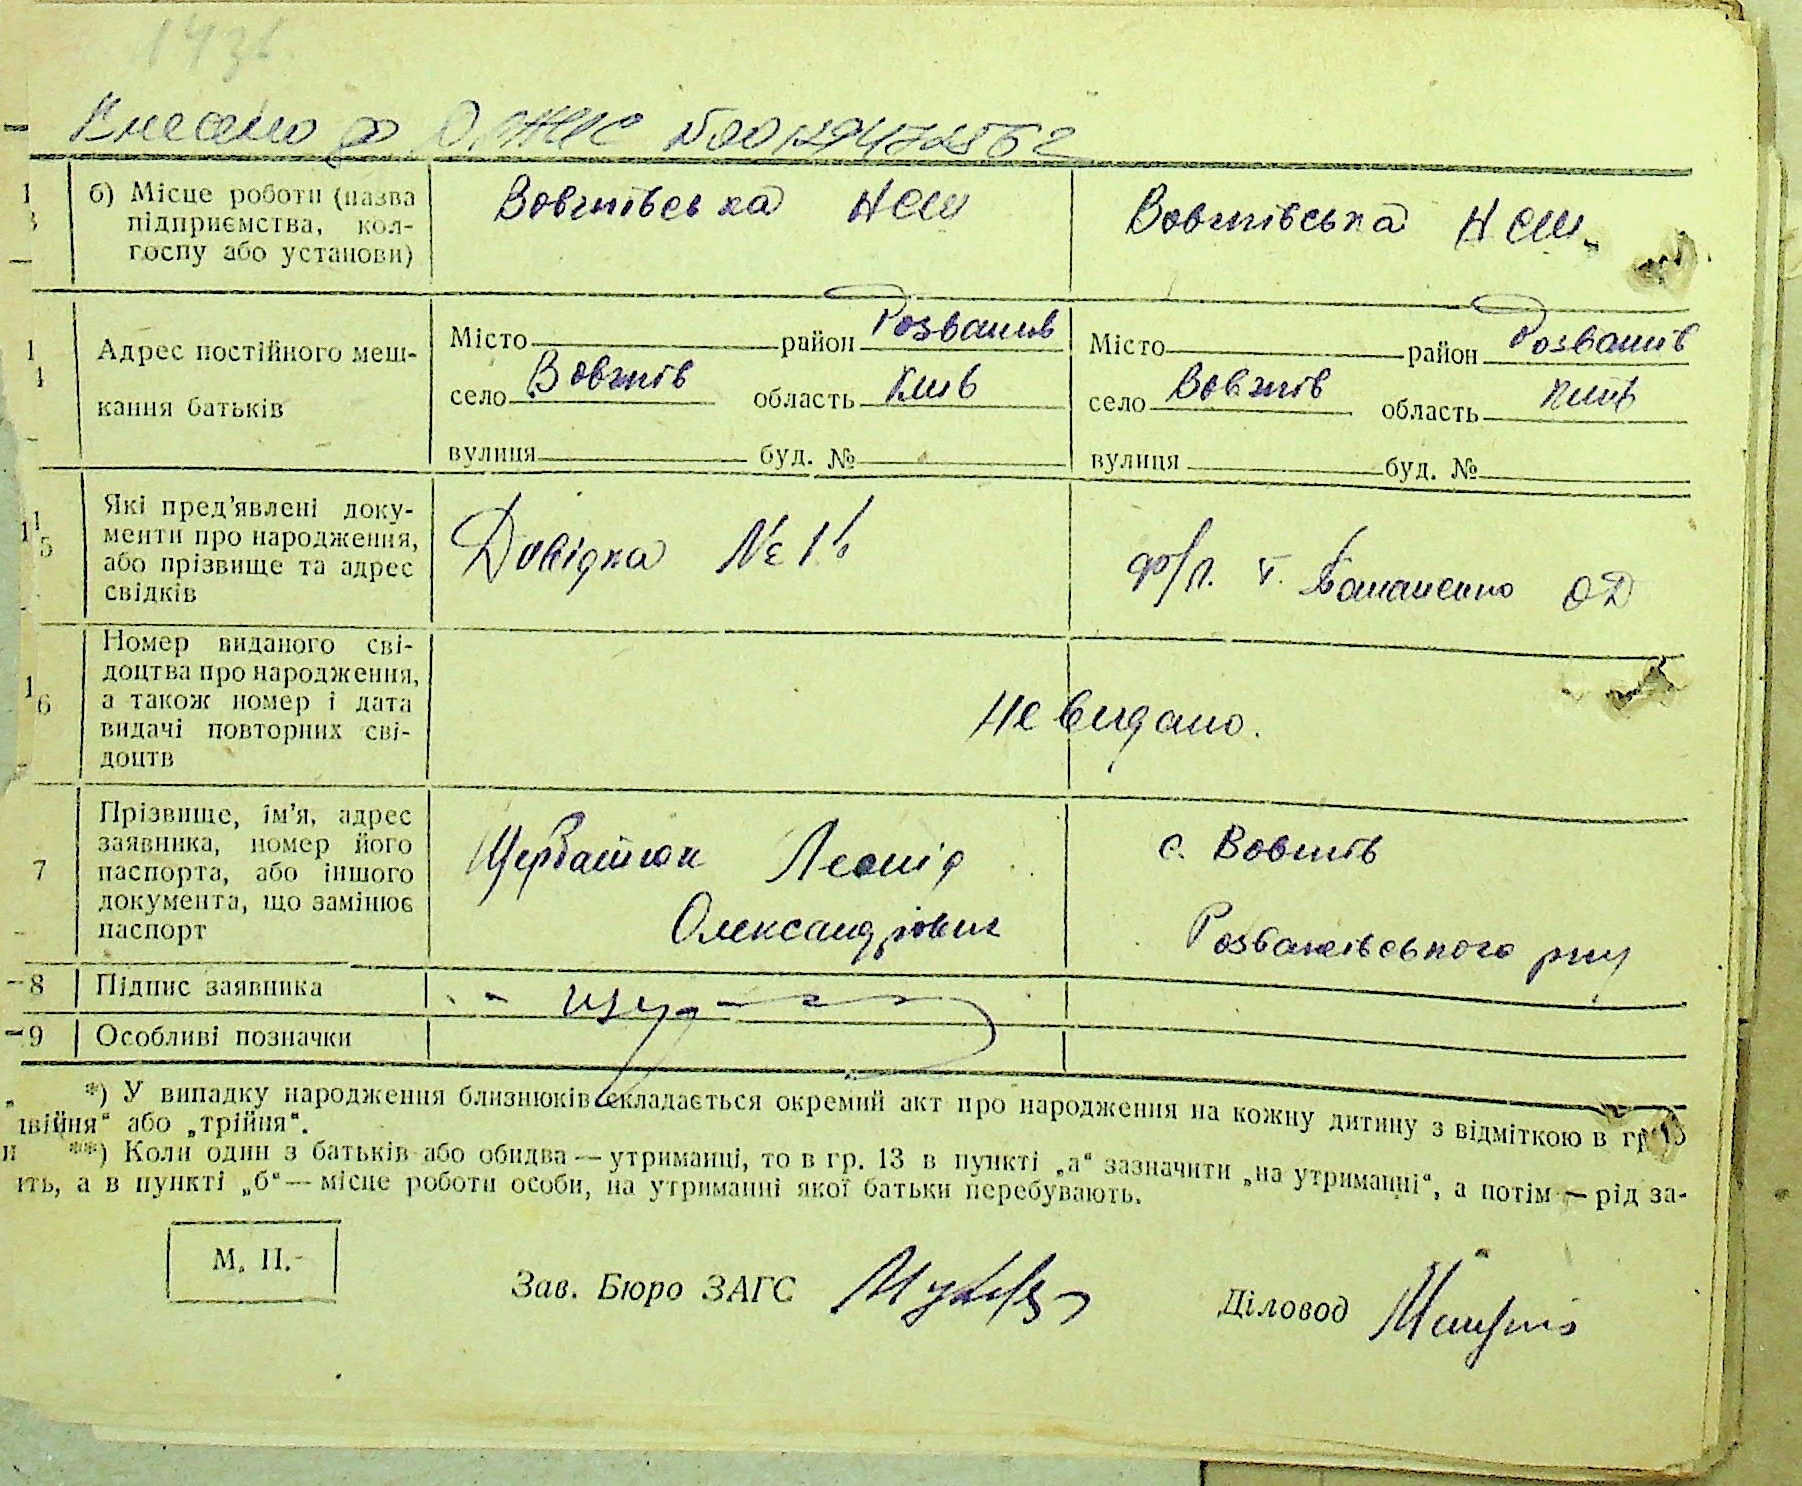 Внесено до ДРАЦС №00124172856
б) Місце роботи (назва підприємства, колгоспу або установи)
Вовчківська НСШ
Вовчківська НСШ
14
Адрес постійного мешкання батьків
Місто район Розважів
село Вовчків область Київ
вулиця буд. №
Місто район Розважів
село Вовчків область Київ
вулиця буд. №
15
Які пред'явлені документи про народження, або прізвище та адрес свідків
Довідка №
ф/п. т.
16
Номер виданого свідоцтва про народження, а також номер і дата видачі повторних свідоцтв
Не видано.
7
Прізвище, ім'я, адрес заявника, номер його паспорта, або іншого документа, що замінює паспорт
Щербатюк Леонід
Олександрович
с. Вовчків
Розважівського р-ну
8 Підпис заявника
9 Особливі позначки
*) У випадку народження близнюків складається окремий акт про народження на кожну дитину з відміткою в гр.
двійня“ або „трійня“.
**) Коли один з батьків або обидва — утриманці, то в гр. 13 в пункті „а“ зазначити „на утриманні“, а потім — рід за-
ить, а в пункті „б“ — місце роботи особи, на утриманні якої батьки перебувають.
М. П.
Зав. Бюро ЗАГС
Діловод